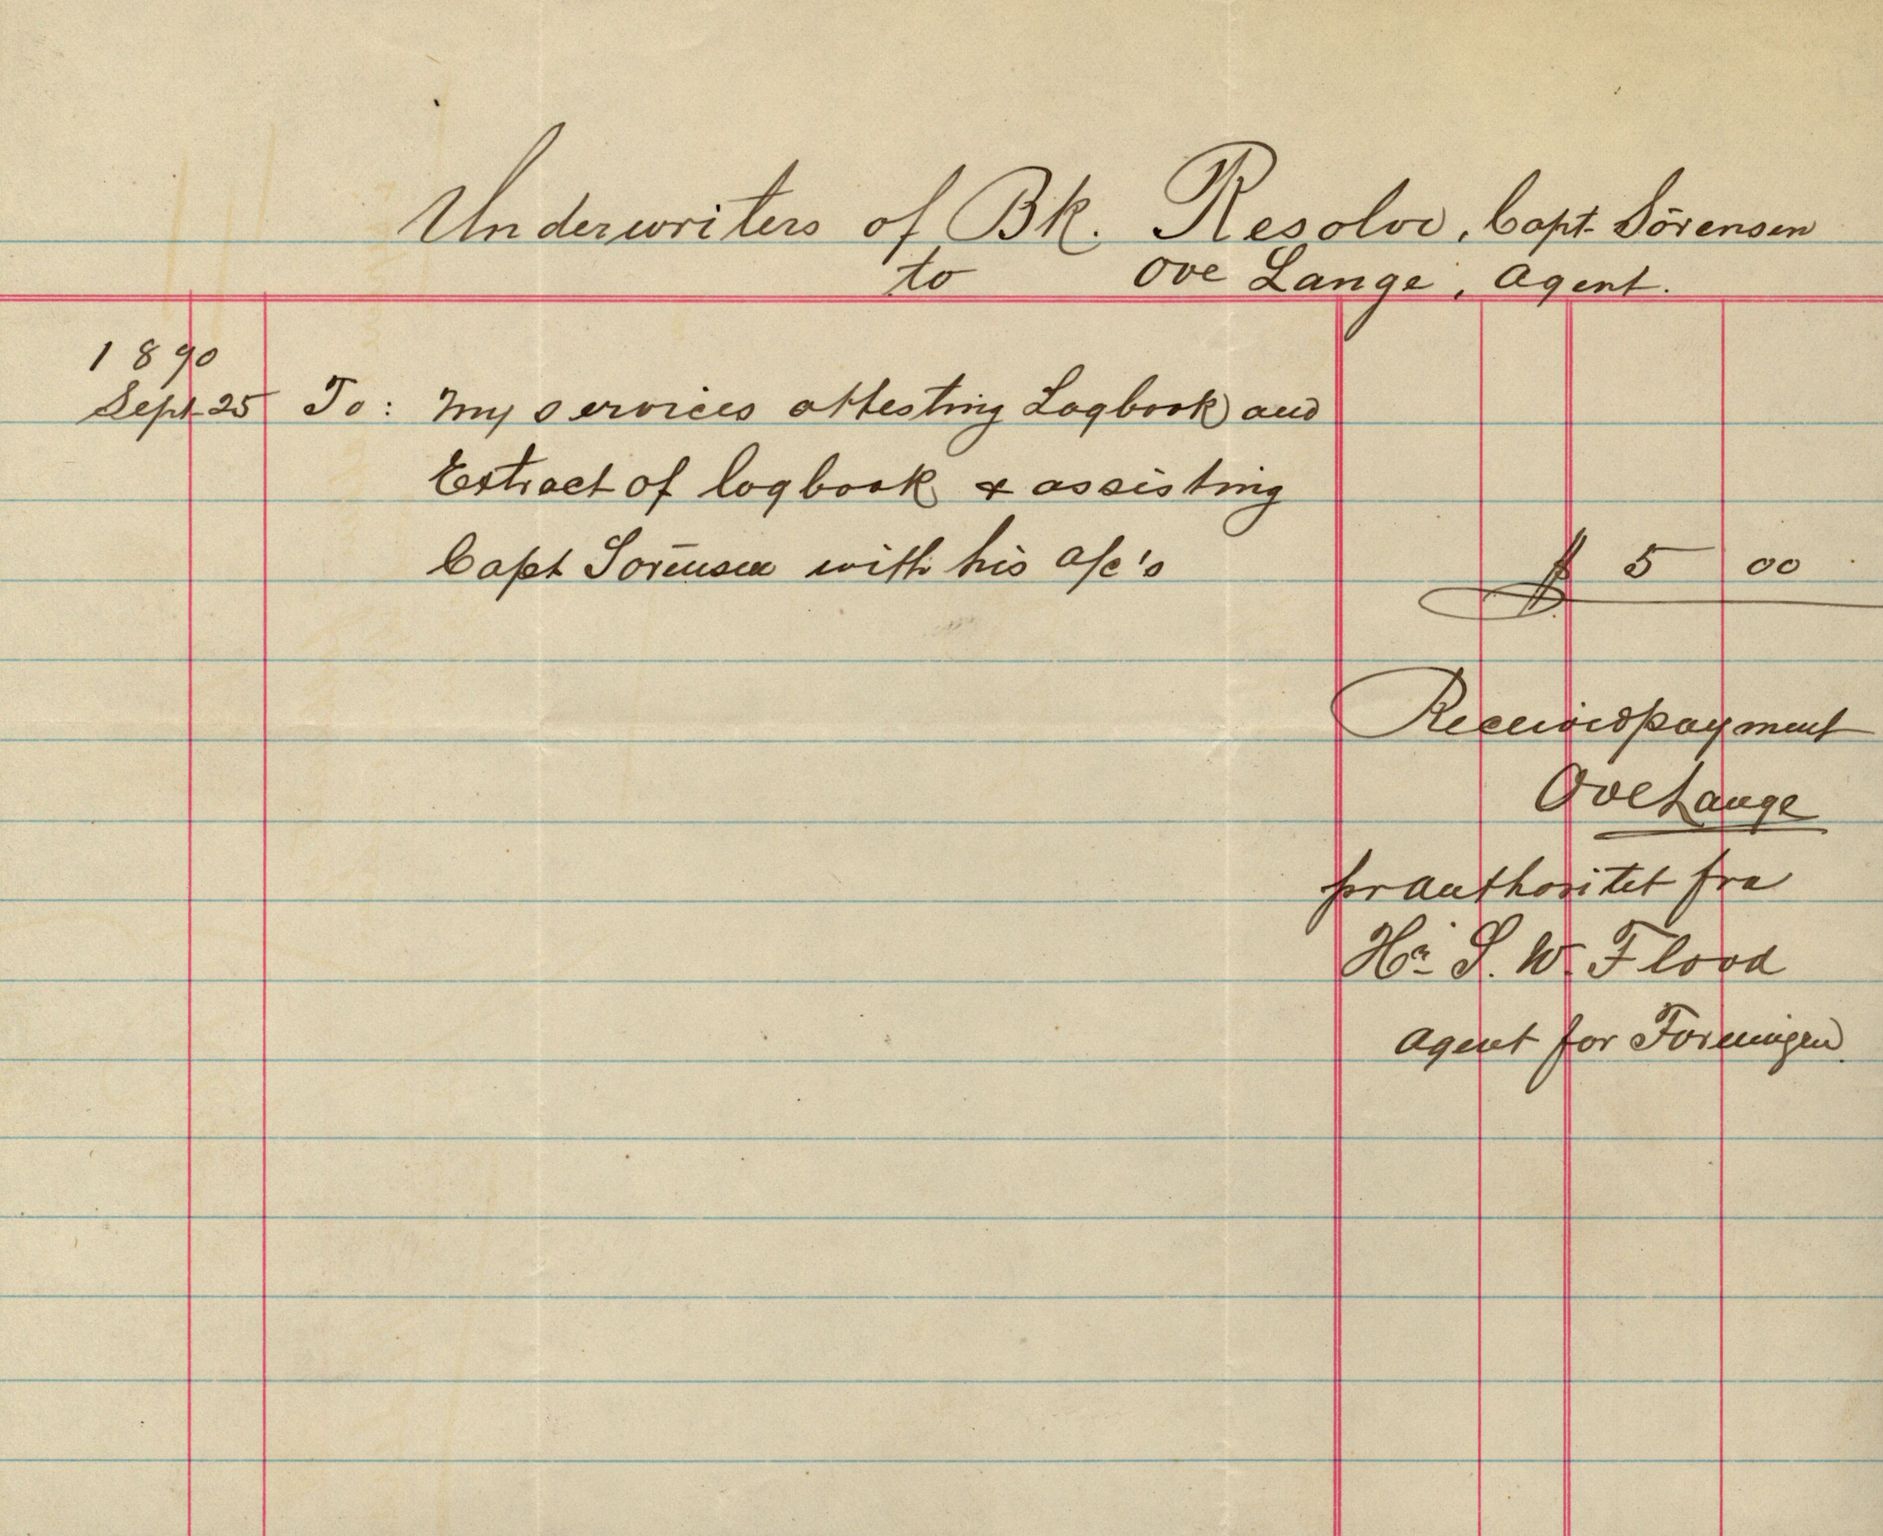 Underwriters of Bk. Resolve, Capt. Sörensen
to Ove Lange, Agent.
1890
Sept 25 To: my services attesting Logbook and
Extract of logbook & assisting
Capt Sörensen with his a/c's $ 5 00
Received payment
Ove Lange
pr authoritet fra
Hr. S. W. Flood
agent for Foreningen.